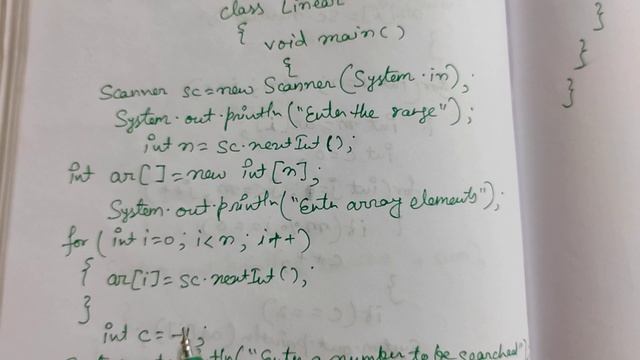 class Linear
{ void main()
{
Scanner sc=new Scanner(System.in);
System.out.println("Enter the range");
int n=sc.nextInt();
int ar[]=new int[n];
System.out.println("Enter array elements");
for(int i=0;i<n;i++)
{ ar[i]=sc.nextInt();
}
int c=-1;
tln("Enter a number to be searched"
}
}
}